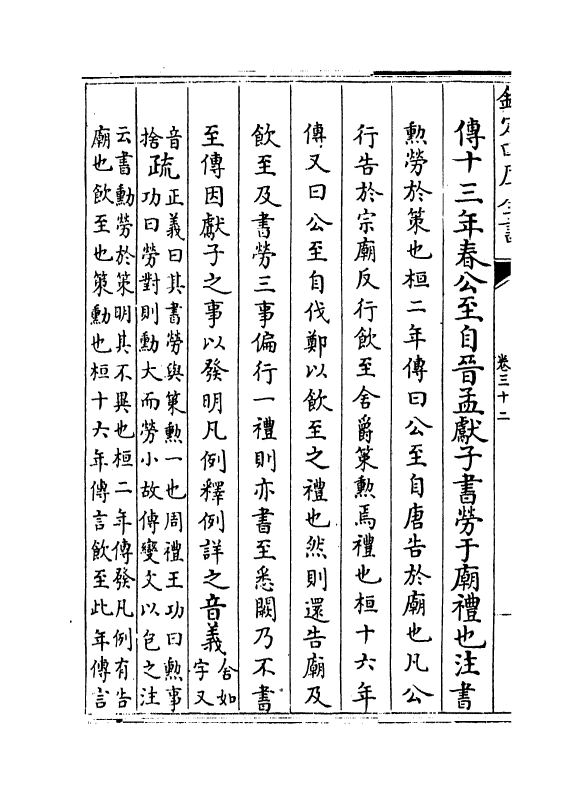 欽定四庫全書
卷三十二
傳十三年春公至自晉孟獻子書勞于廟禮也注書
勲勞於策也桓二年傳曰公至自唐告於廟也凡公
行告於宗廟反行飲至舍爵策勲焉禮也桓十六年
傳又曰公至自伐鄭以飲至之禮也然則還告廟及
飲至及書勞三事偏行一禮則亦書至悉闕乃不書
至傳因獻子之事以發明凡例釋例詳之音義舍如字又
音捨疏正義曰其書勞與策勲一也周禮王功曰勲事
功曰勞對則勲大而勞小故傳變文以包之注
云書勳勞於策明其不異也桓二年傳發凡例有告
廟也飲至也策勳也桓十六年傳言飲至此年傳言